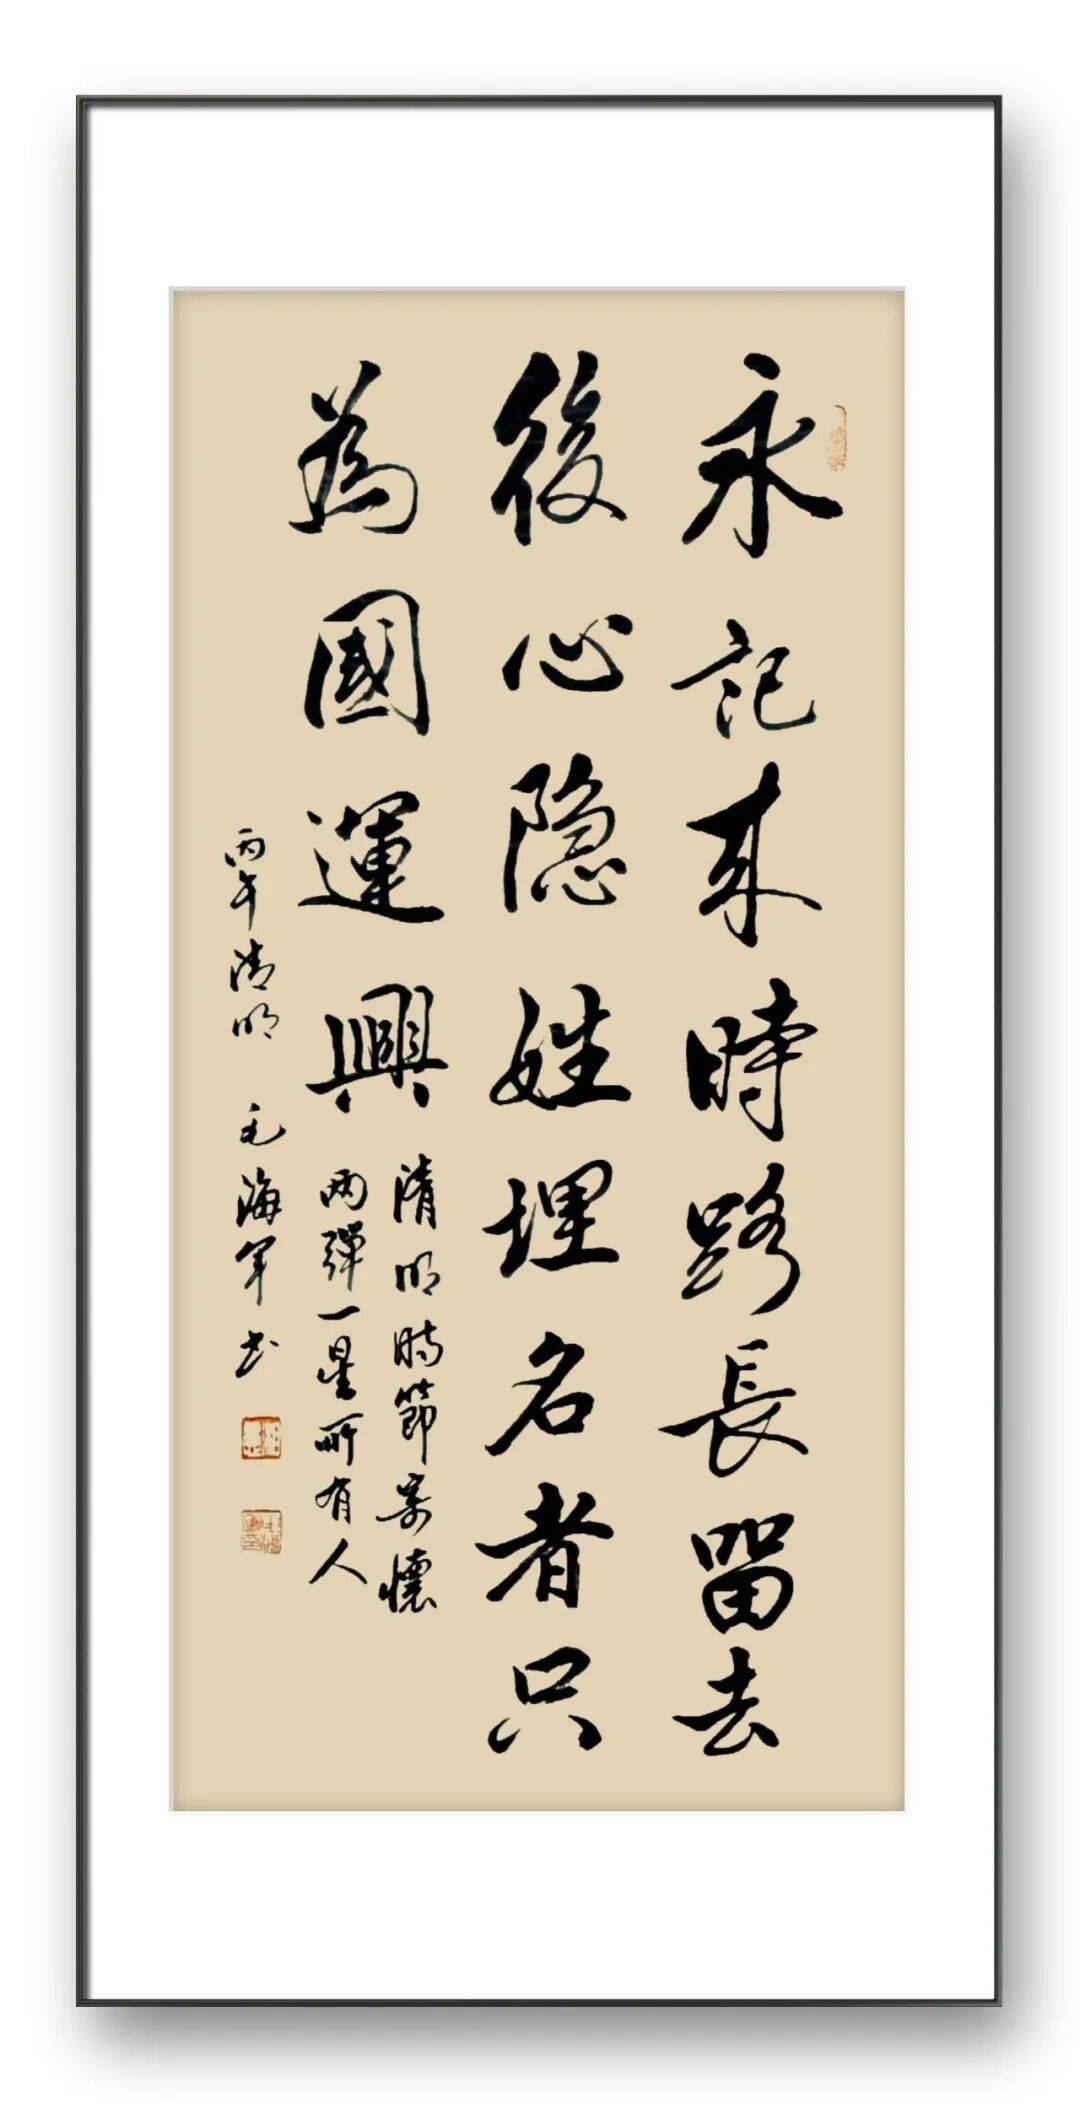 永記来時路長留去
後心隐姓埋名者只
為國運興
清明時節寄懷
两彈一星所有人
丙午清明 毛海军书